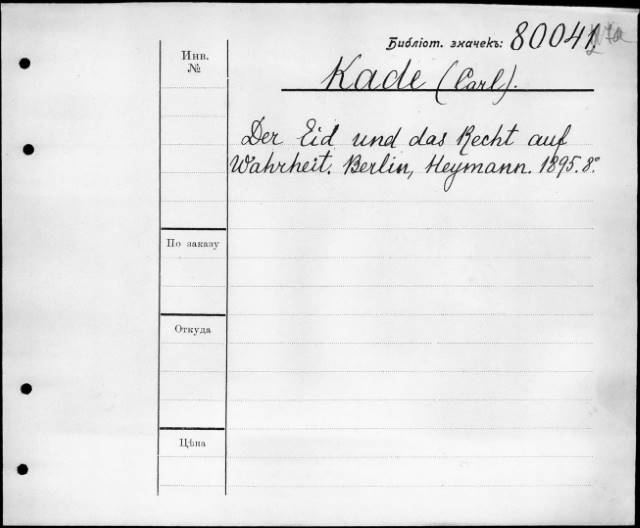 Библіот. значекъ: 80041.
Инв.
№
Kade (Carl).
Der Eid und das Recht auf
Wahrheit. Berlin, Heymann. 1895. 8°
По заказу
Откуда
Цѣна